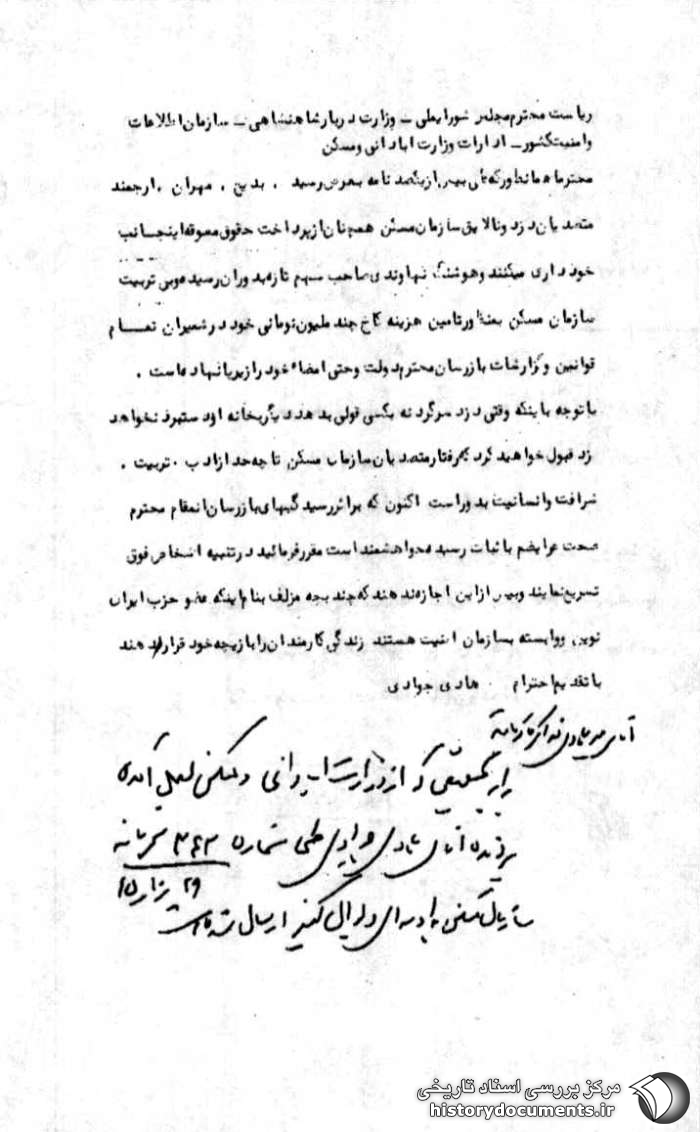 ریاست محترم مجلس شورایملی - وزارت دربار شاهنشاهی - سازمان اطلاعات
و امنیت کشور - ادارات وزارت ابادانی و مسکن
محترما همانطور که طی بیش از یکصد نامه بعرض رسید . بدیع . مهران . ارجمند
متصدیان دزد و نالایق سازمان مسکن همچنان از پرداخت حقوق معوقه اینجانب
خودداری میکنند و هوشنگ نهاوندی صاحب سهم تازه بدوران رسیده و بی تربیت
سازمان مسکن بمنظور تامین هزینه کاخ چند ملیون تومانی خود در شمیران تمام
قوانین و گزارشات بازرسان محترم دولت و حتی امضاء خود را زیر پا نهاده است .
با توجه باینکه وقتی دزد سرگردنه بکسی قولی بدهد دیگر بخانه او دستبرد نخواهد
زد قبول خواهید کرد که رفتار متصدیان سازمان مسکن تا چه حد از ادب . تربیت .
شرافت و انسانیت بدور است اکنون که بر اثر رسیدگیهای بازرسان انمقام محترم
صحت عرایضم باثبات رسیده خواهشمند است مقرر فرمائید در تنبیه اشخاص فوق
تسریع نمایند و بیش از این اجازه ندهند که چند بچه مزلف بنام اینکه عضو حزب ایران
نوین و وابسته بسازمان امنیت هستند زندگی کارمندان را بازیچه خود قرار دهند
با تقدیم احترام هادی جوادی
آقای
که از وزارت آبادانی و مسکن بعمل آمده
پرونده آقای هادی جوادی طی شماره ۳۴۳ محرمانه
۲۹
ارسال شده است
مرکز بررسی اسناد تاریخی
historydocuments.ir